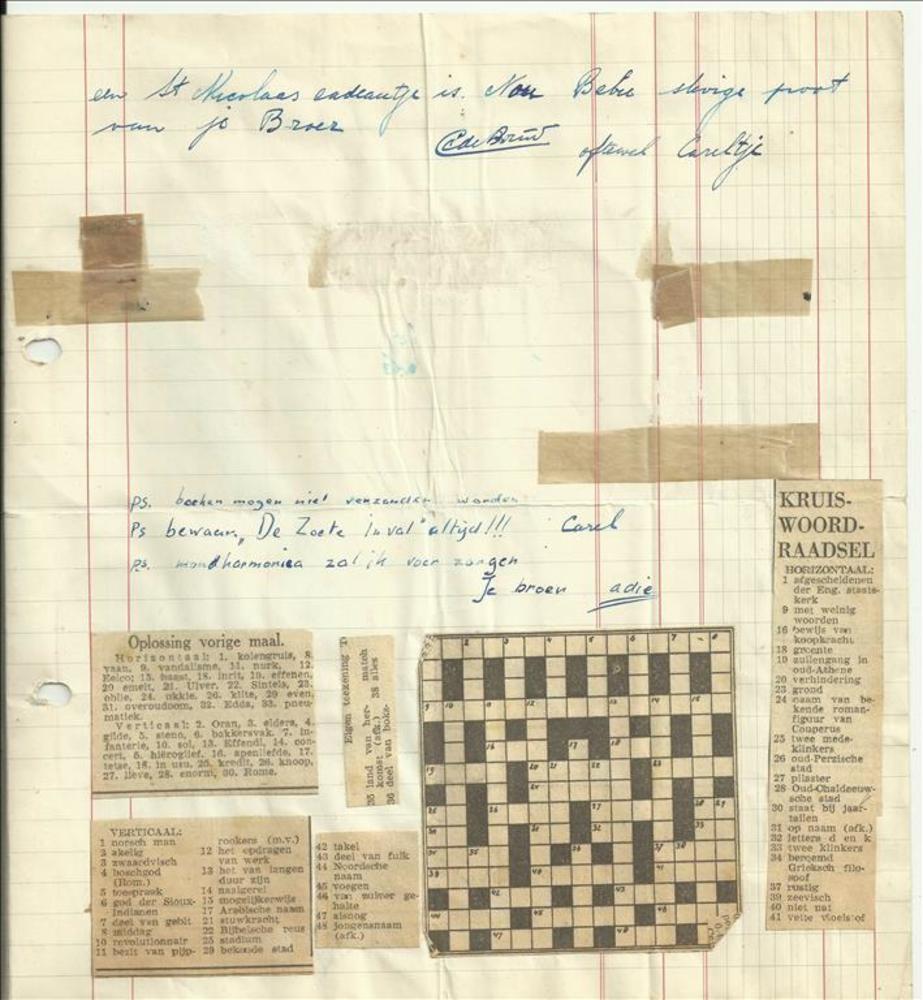 een St Nicolaas cadeautje is. Nou Bebe stevige poot
van je Broer
oftewel Careltje
Ps. boeken mogen niet verzonden worden
Ps bewaar „De Zoete Inval" altijd!!! Carel
Ps. mondharmonica zal ik voor zorgen
Je broer adie
KRUIS-
WOORD-
RAADSEL
HORIZONTAAL:
1 afgescheidenen
der Eng. staats-
kerk
9 met weinig
woorden
16 bewijs van
koopkracht
18 groente
19 zuilengang in
oud-Athene
20 verhindering
23 grond
24 naam van be-
kende roman-
figuur van
Couperus
25 twee mede-
klinkers
26 oud-Perzische
stad
27 pilaster
28 Oud-Chaldeeuw-
sche stad
30 staat bij jaar-
tallen
31 op naam (afk.)
32 letters d en k
33 twee klinkers
34 beroemd
Grieksch filo-
soof
37 rustig
39 zeevisch
40 niet nat
41 vette vloeistof
Oplossing vorige maal.
Horizontaal: 1. kolengruis, 8.
vaan, 9. vandalisme, 11. nurk, 12.
Eelco; 15. baast, 18. inrit, 19. effenen,
20 emelt, 21. Ulver. 22. Sintels, 23.
oblie, 24. ukkie. 26. kilte, 29 even,
31. overoudoom, 32. Edda, 33. pneu-
matiek.
Verticaal: 2. Oran, 3. elders, 4.
gilde, 5. steno, 6. bakkersvak. 7. in-
fanterie, 10. sol, 13. Effendi, 14. con-
cert, 5. hiëroglief. 16. apenliefde, 17.
tetse, 18. in usu, 25. kredit, 26. knoop,
27. lieve, 28. enorm, 30. Rome.
Eigen teekening
35 land van her- match
komst (afk.) 38 alles
36 deel van boks-
VERTICAAL:
1 norsch man
2 akelig
3 zwaardvisch
4 boschgod
(Rom.)
5 toespraak
6 god der Sioux-
Indianen
7 deel van gebit
8 middag
10 revolutionnair
11 bezit van pijp-
rookers (m.v.)
12 het opdragen
van werk
13 het van langen
duur zijn
14 naaigerei
15 mogelijkerwijs
17 Arabische naam
21 stuwkracht
22 Bijbelsche reus
25 stadium
29 bekende stad
42 takel
43 deel van fuik
44 Noordsche
naam
45 voegen
46 van zuiver ge-
halte
47 alsnog
48 jongensnaam
(afk.)